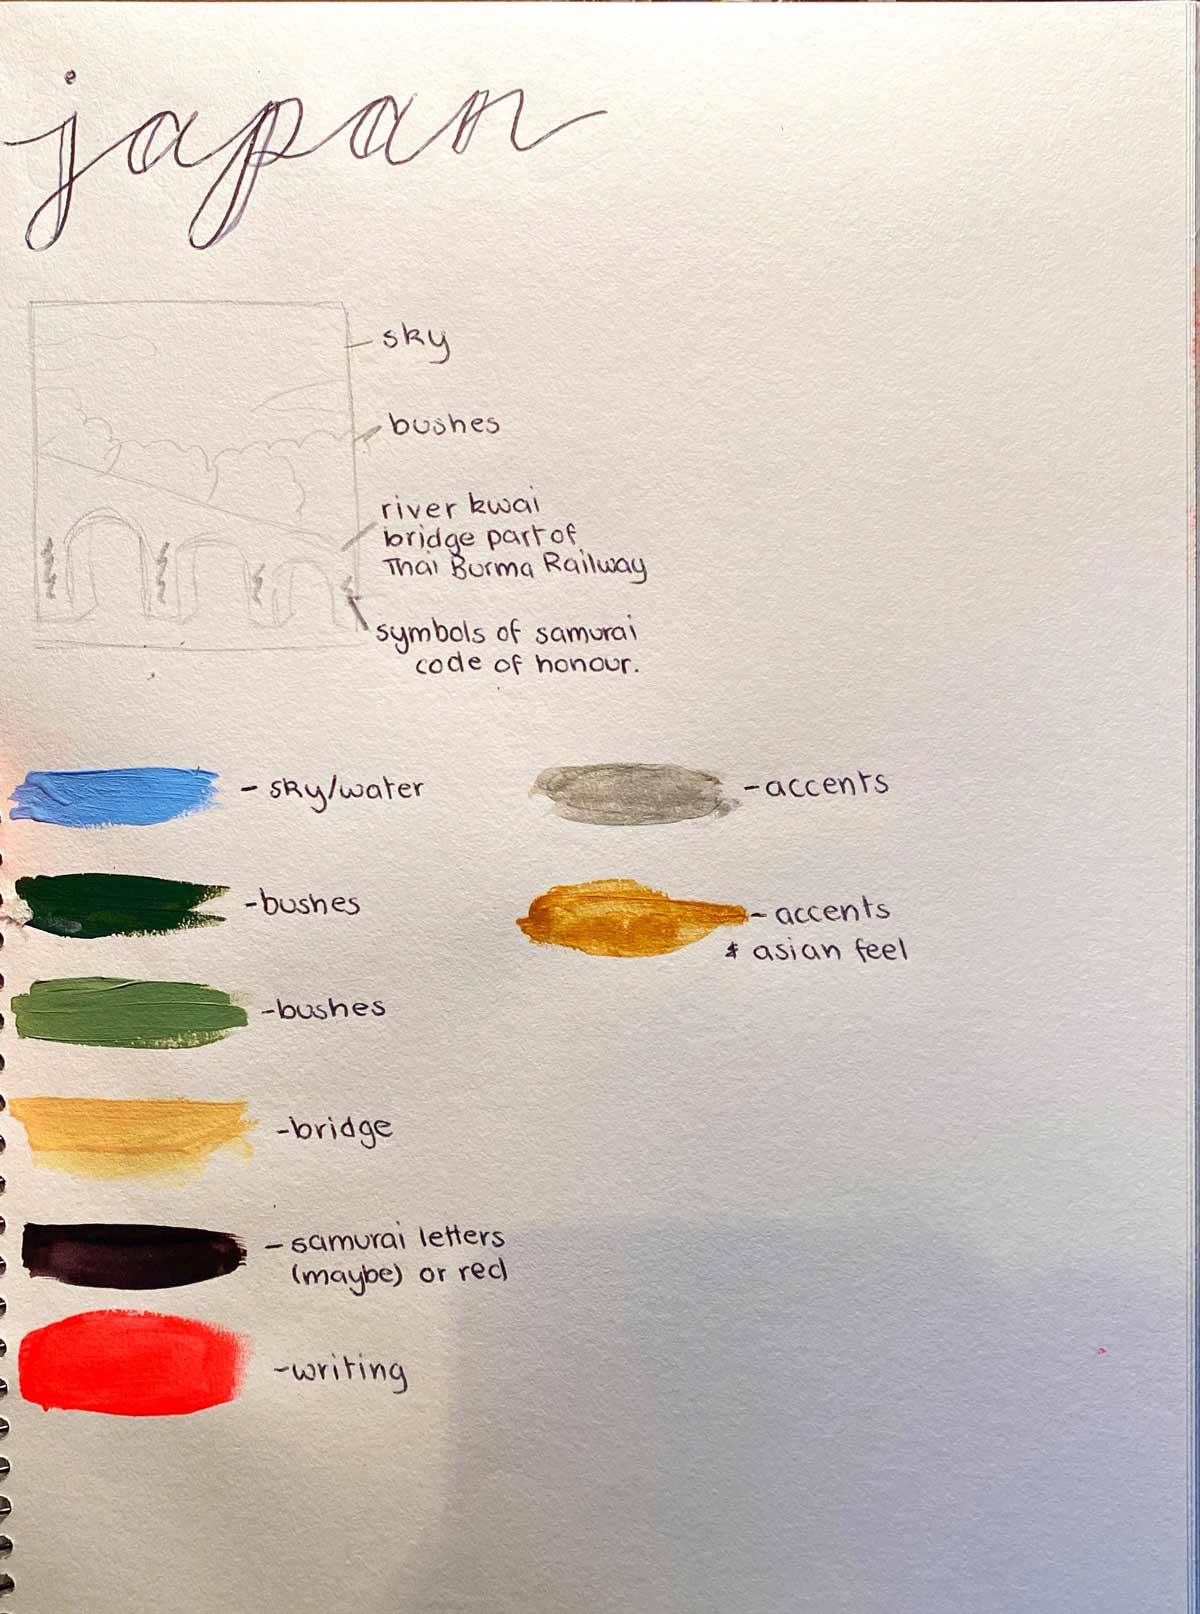 japan
sky
bushes
river kwai
bridge part of
Thai Burma Railway
symbols of samurai
code of honour.
- sky/water
- bushes
- bushes
- bridge
- samurai letters
(maybe) or red
- writing
- accents
- accents
& asian feel